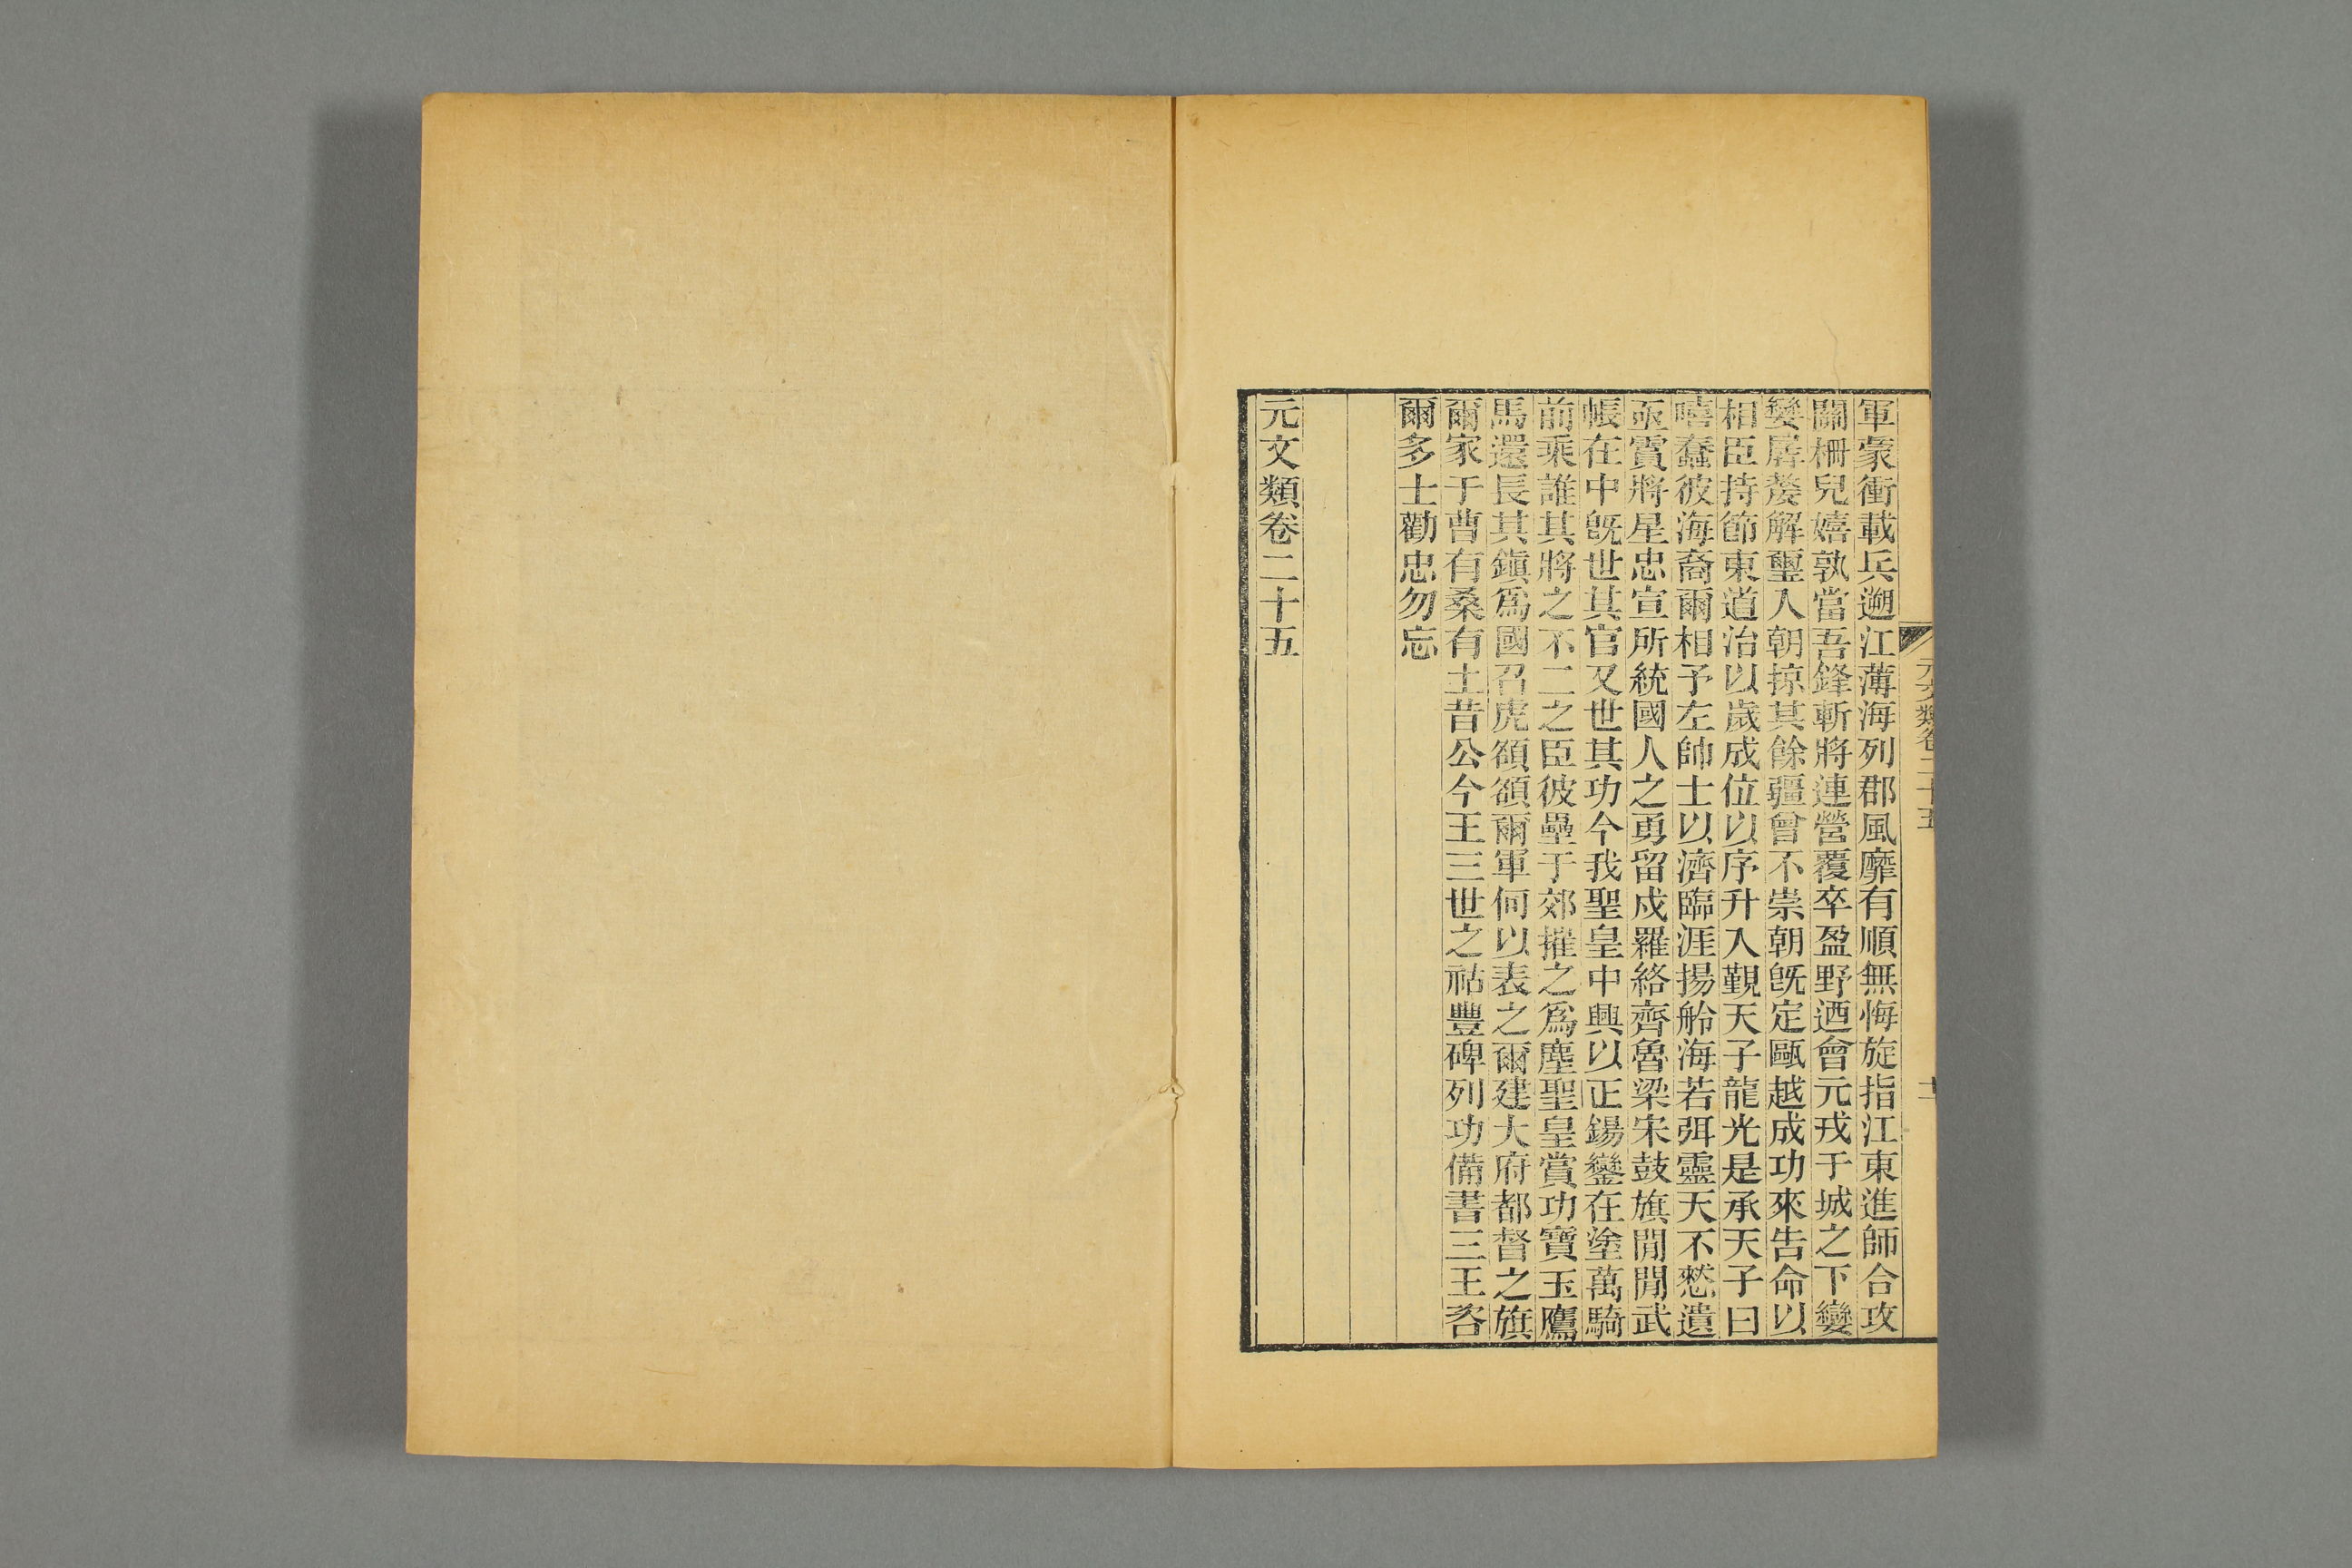 元文類卷二十五
軍蒙衝載兵遡江薄海列郡風靡有順無悔旋指江東進師合攻
關柵兒嬉孰當吾鋒斬將連營覆卒盈野迺會元戎于城之下孌
孌孱嫠解璽入朝掠其餘疆曾不崇朝旣定甌越成功來告命以
相臣持節東道治以歲成位以序升入覲天子龍光是承天子曰
嘻蠢彼海裔爾相予左帥士以濟臨涯揚舲海若弭靈天不憖遺
亟霣將星忠宣所統國人之勇留戍羅絡齊魯梁宋鼓旗閒閒武
帳在中旣世其官又世其功今我聖皇中興以正鍚鑾在塗萬騎
前乘誰其將之不二之臣彼壘于郊摧之爲塵聖皇賞功寶玉鷹
馬還長其鎭爲國召虎頟頟爾軍何以表之爾建大府都督之旗
爾家于曹有桑有土昔公今王三世之祜豐碑列功備書三王咨
爾多士勸忠勿忘
元文類卷二十五